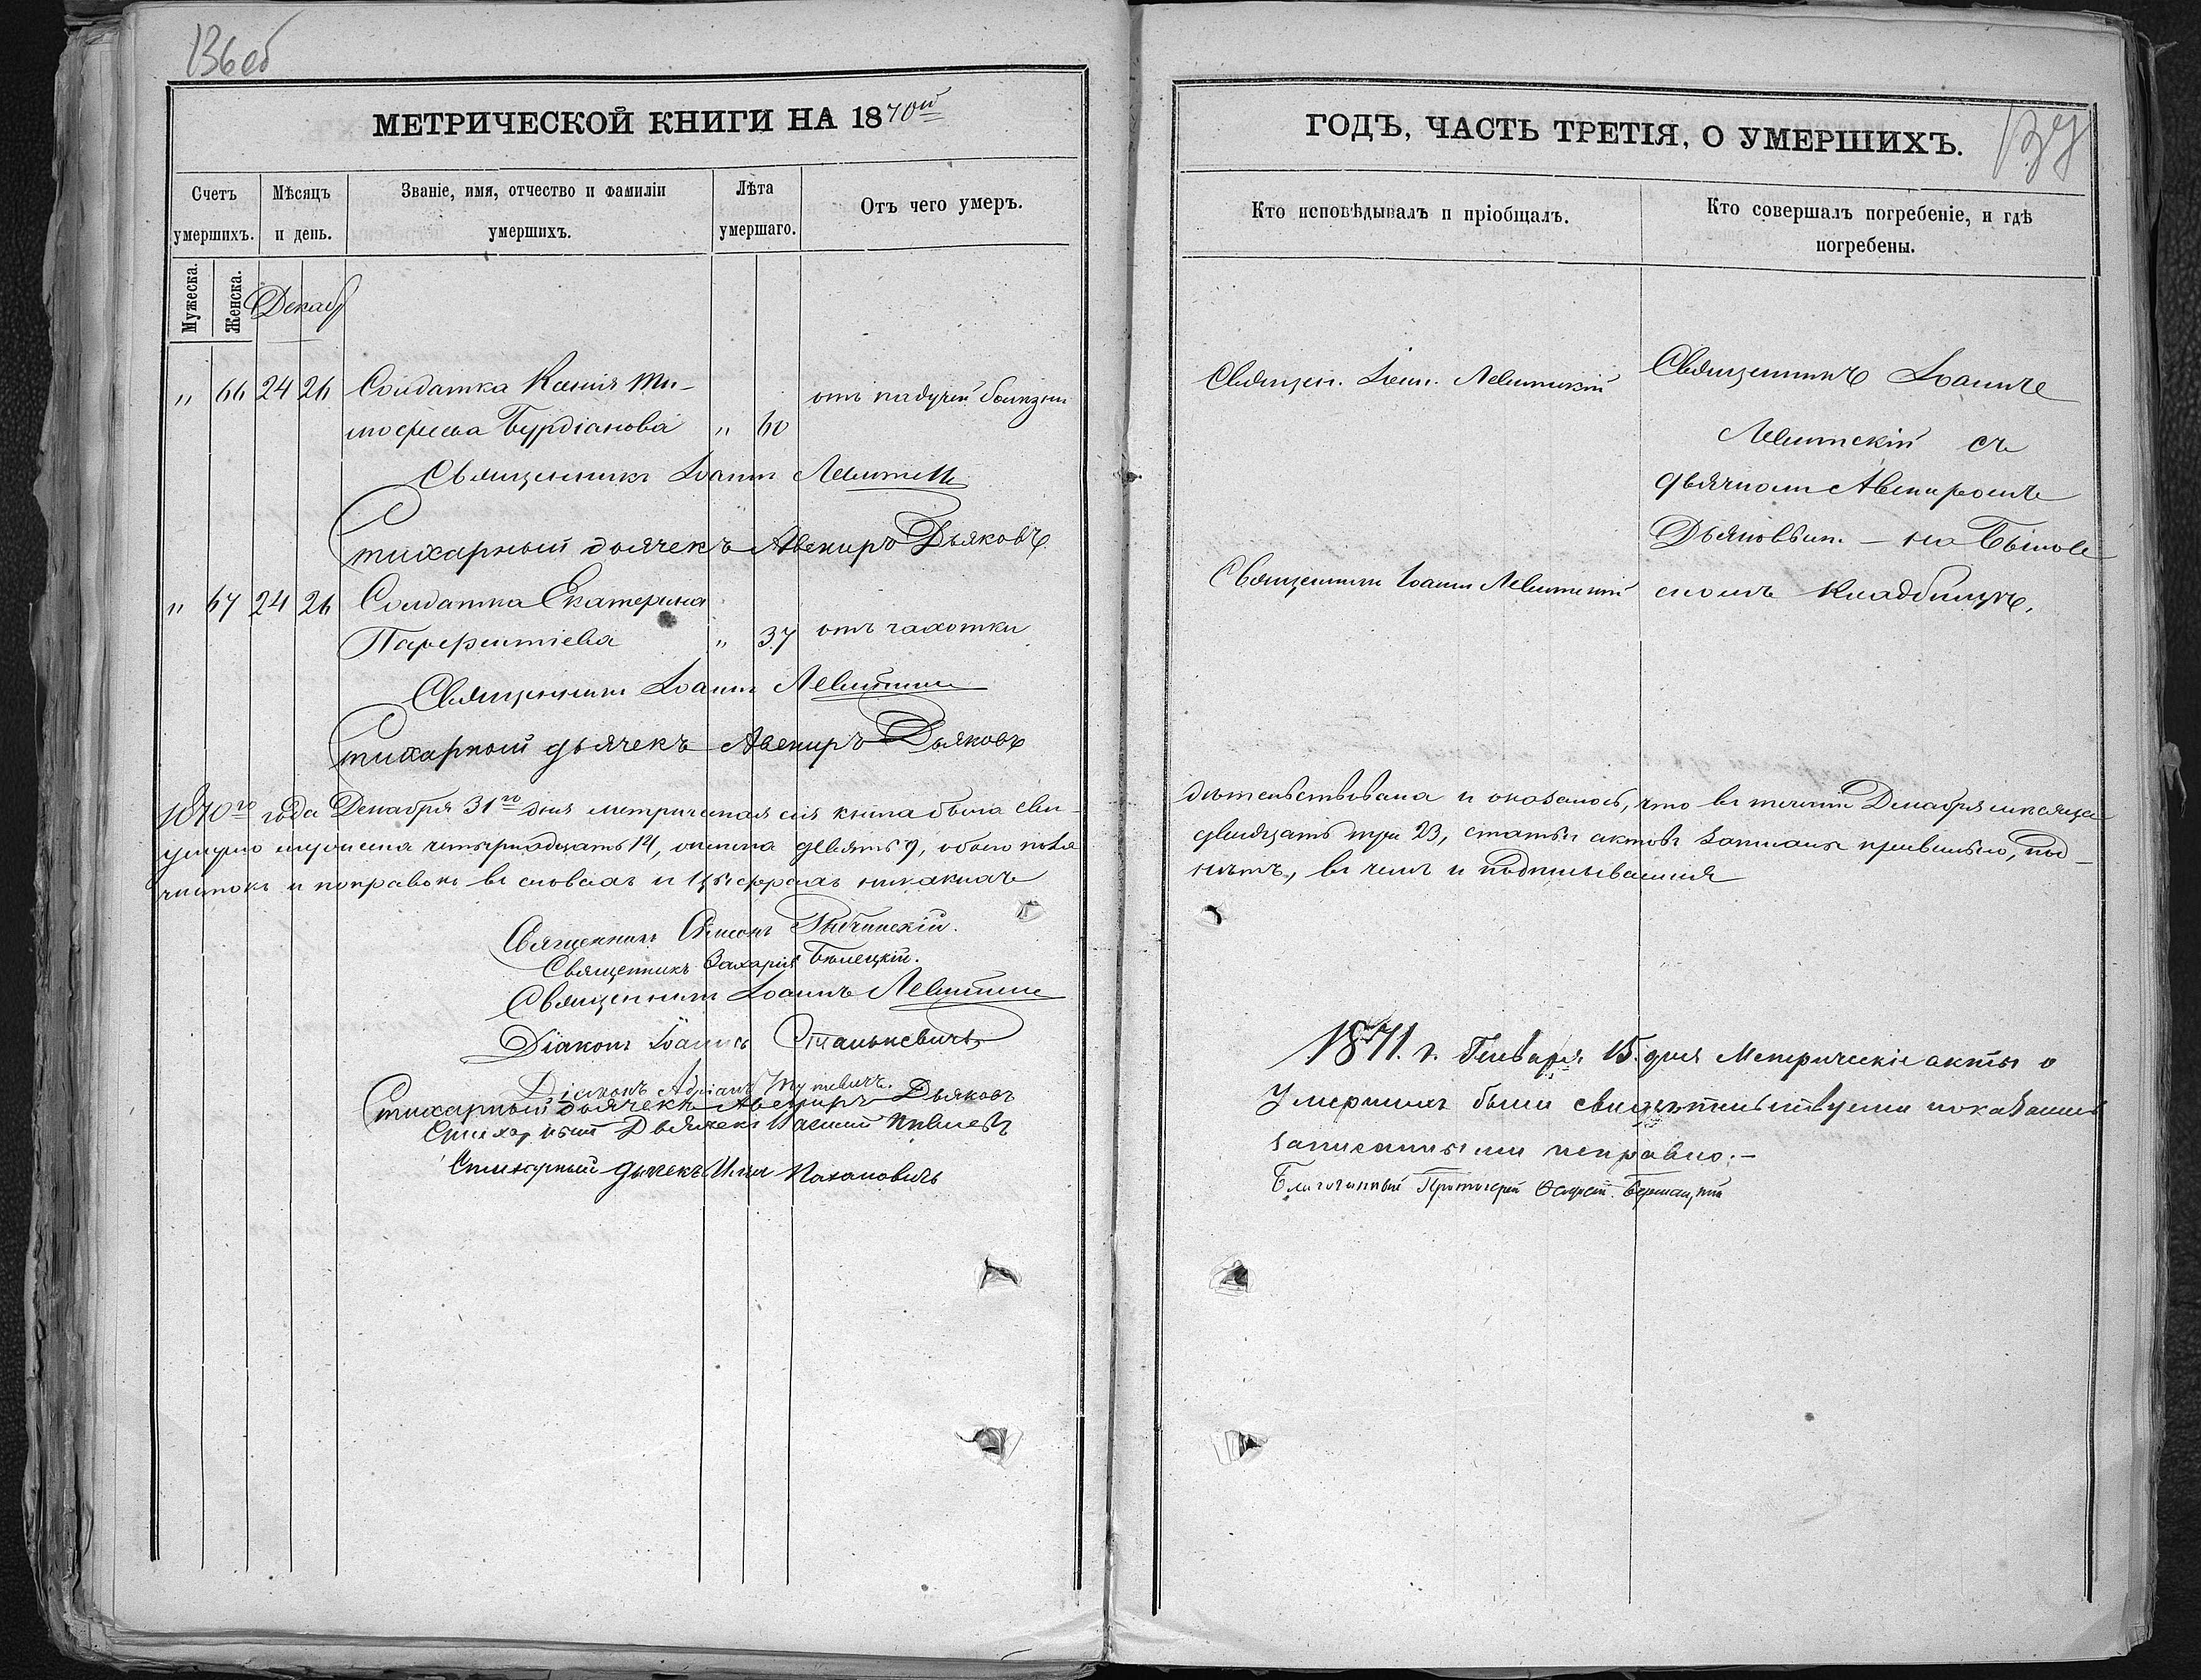 136 об
МЕТРИЧЕСКОЙ КНИГИ НА 1870й
Счетъ умершихъ.
Мѣсяцъ и день.
Званіе, имя, отчество и фамиліи умершихъ.
Лѣта умершаго.
Отъ чего умеръ.
Мужеска.
Женска.
Декабр
" 66 24 26 Солдатка Ксенія Ти-
мофеева Бурдіанова " 60 отъ падучей болѣзни
Священникъ Іоаннъ Левитскій
Стихарный дьячекъ Авениръ Дьяковъ
" 67 24 26 Солдатка Екатерина
Парфентіева " 37 отъ чахотки
Священникъ Іоаннъ Левитскій
Стихарный дьячекъ Авениръ Дьяковъ
1870го года Декабря 31го дня метрическая сія книга была сви-
умерло мужеска четырнадцать 14, женска девять 9, обоего пола
чистокъ и поправокъ въ словахъ и цыфрахъ никакихъ
Священникъ Симеонъ
Священникъ Захарія Бѣлецкій.
Священникъ Іоаннъ Левитскій
Діаконъ Іоаннъ Станькевичъ
Діаконъ Адріанъ
Стихарный дьячекъ Авениръ Дьяковъ
Стихарный Дьячекъ Василій
Стихарный дьячекъ Илья
ГОДЪ, ЧАСТЬ ТРЕТІЯ, О УМЕРШИХЪ.
137
Кто исповѣдывалъ и пріобщалъ.
Кто совершалъ погребеніе, и гдѣ погребены.
Священ. Іоан. Левитскій
Священникъ Іоаннъ
Левитскій съ
дьячкомъ Авениромъ
Дьяковымъ – на
скомъ кладбищѣ.
Священникъ Іоаннъ Левитскій
дѣтельствована и оказалось, что въ теченіи Декабря мѣсяца
двадцать три 23, статьи актовъ записаны правильно, под-
нѣтъ, въ чемъ и подписываемся
1871. г. Генваря 15. дня Метрическіе акты о
Умершихъ были свидѣтельствуемы показались
записанными исправно.–
Благочинный Протоіерей